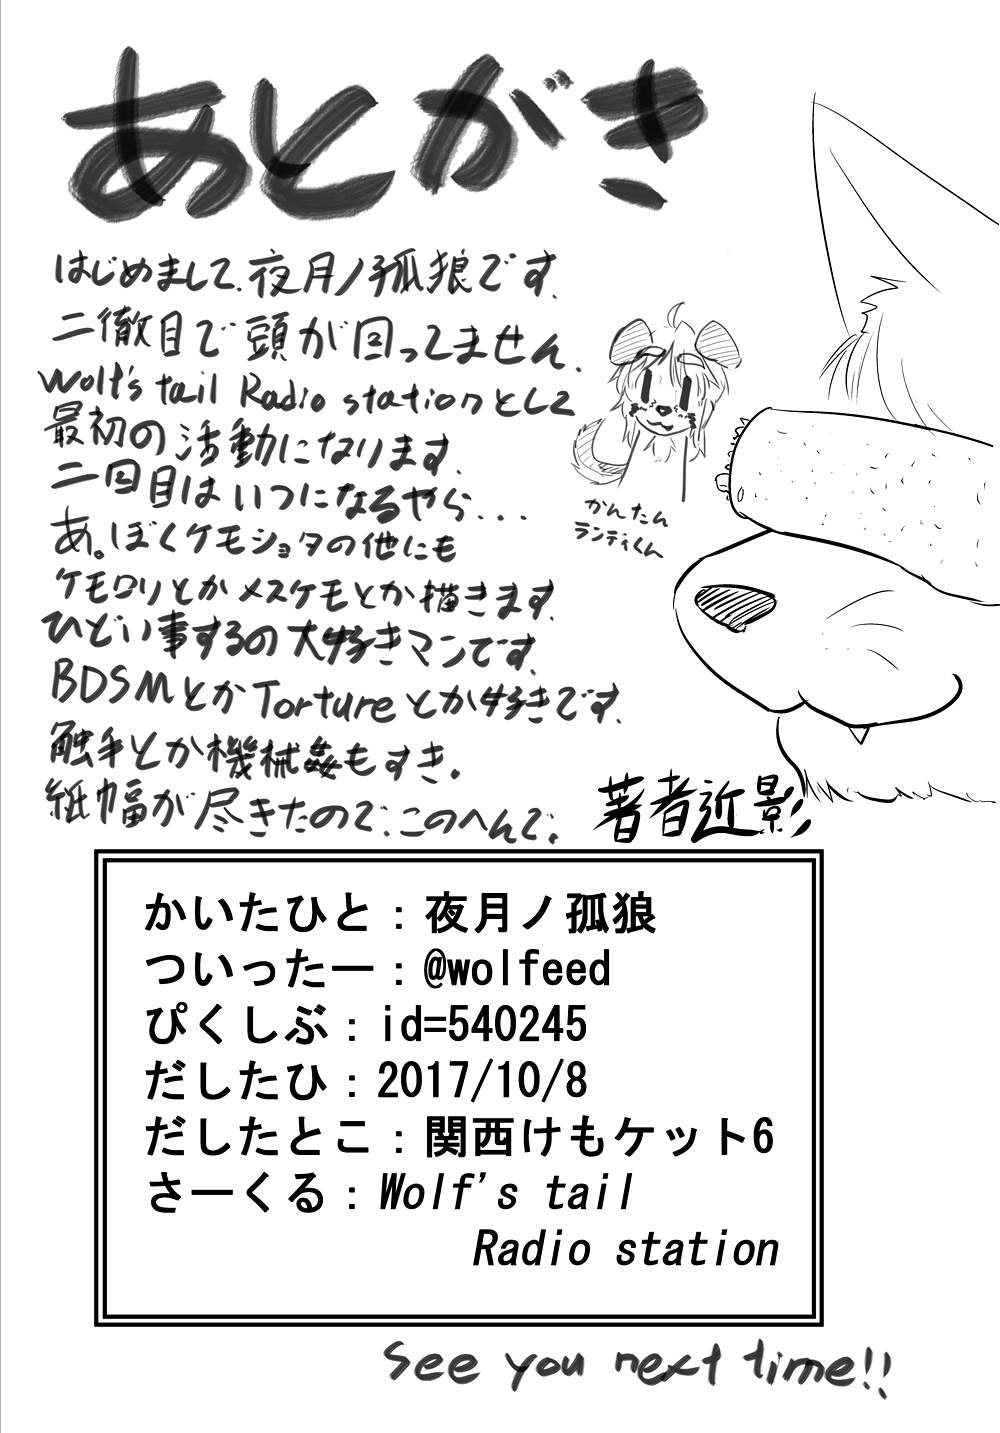 あとがき
はじめまして、夜月ノ孤狼です。
二徹目で頭が回ってません。
Wolf's tail Radio stationとして
最初の活動になります。
二回目はいつになるやら...
あ。ぼくケモショタの他にも
ケモロリとかメスケモとか描きます。
ひどい事するの大好きマンです。
BDSMとかTortureとか好きです。
触手とか機械姦もすき。
紙幅が尽きたので、このへんで。
かんたん
ランディくん
著者近影
かいたひと：夜月ノ孤狼
ついったー：@wolfeed
ぴくしぶ：id=540245
だしたひ：2017/10/8
だしたとこ：関西けもケット6
さーくる：Wolf's tail
Radio station
See you next time!!